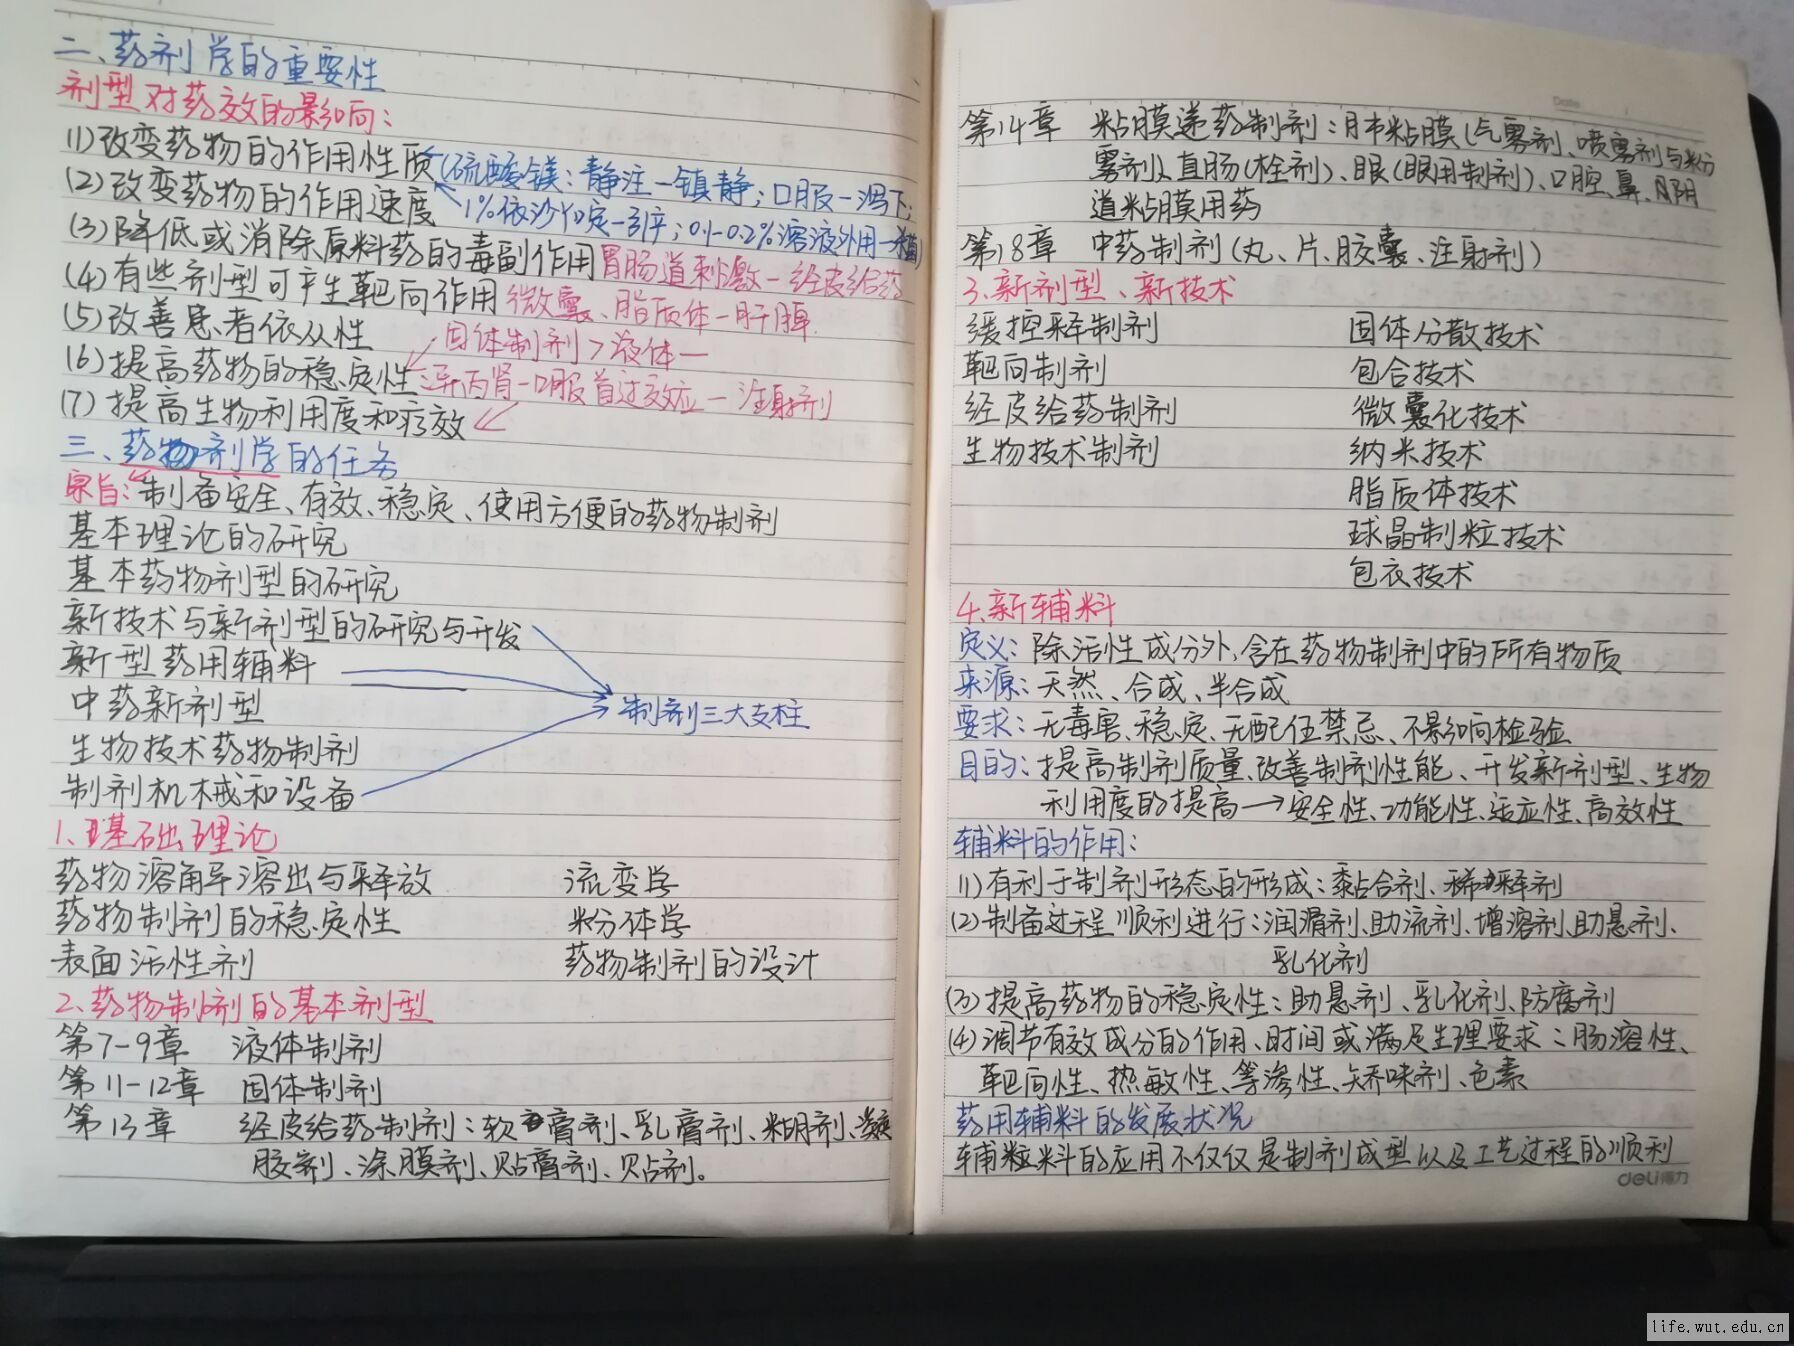 二、药剂学的重要性
剂型对药效的影响:
(1)改变药物的作用性质(硫酸镁:静注—镇静;口服—泻下;
(2)改变药物的作用速度 1%依沙吖啶—引产;0.1-0.2%溶液外用—杀菌)
(3)降低或消除原料药的毒副作用 胃肠道刺激—经皮给药
(4)有些剂型可产生靶向作用 微囊、脂质体—肝脾
(5)改善患者依从性 固体制剂>液体—
(6)提高药物的稳定性
异丙肾—口服首过效应—注射剂
(7)提高生物利用度和疗效
三、药物剂学的任务
宗旨:制备安全、有效、稳定、使用方便的药物制剂
基本理论的研究
基本药物剂型的研究
新技术与新剂型的研究与开发
新型药用辅料
中药新剂型 制剂三大支柱
生物技术药物制剂
制剂机械和设备
1.基础理论
药物溶解溶出与释放 流变学
药物制剂的稳定性 粉体学
表面活性剂 药物制剂的设计
2.药物制剂的基本剂型
第7-9章 液体制剂
第11-12章 固体制剂
第13章 经皮给药制剂:软膏剂、乳膏剂、糊剂、凝
胶剂、涂膜剂、贴膏剂、贴剂。
Date
第14章 粘膜递药制剂:肺粘膜(气雾剂、喷雾剂与粉
雾剂)、直肠(栓剂)、眼(眼用制剂)、口腔、鼻、阴
道粘膜用药
第18章 中药制剂(丸、片、胶囊、注射剂)
3.新剂型、新技术
缓控释制剂 固体分散技术
靶向制剂 包合技术
经皮给药制剂 微囊化技术
生物技术制剂 纳米技术
脂质体技术
球晶制粒技术
包衣技术
4.新辅料
定义:除活性成分外,含在药物制剂中的所有物质
来源:天然、合成、半合成
要求:无毒害、稳定、无配伍禁忌、不影响检验
目的:提高制剂质量、改善制剂性能、开发新剂型、生物
利用度的提高→安全性、功能性、适应性、高效性
辅料的作用:
(1)有利于制剂形态的形成:黏合剂、稀释剂
(2)制备过程顺利进行:润滑剂、助流剂、增溶剂、助悬剂、
乳化剂
(3)提高药物的稳定性:助悬剂、乳化剂、防腐剂
(4)调节有效成分的作用、时间或满足生理要求:肠溶性、
靶向性、热敏性、等渗性、矫味剂、色素
药用辅料的发展状况
辅料的应用不仅仅是制剂成型以及工艺过程的顺利
deli得力
life.wut.edu.cn